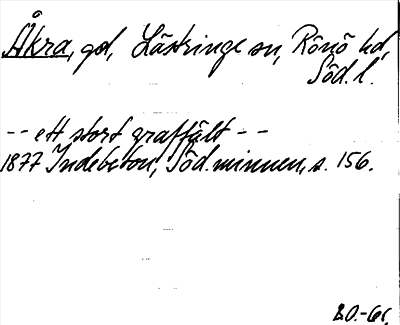 Åkra, gd, Lästringe sn, Rönö hd,
Söd. l.
-- ett stort graffält --
1877 Indebetou, Söd. minnen, s. 156.
B.O.-61.